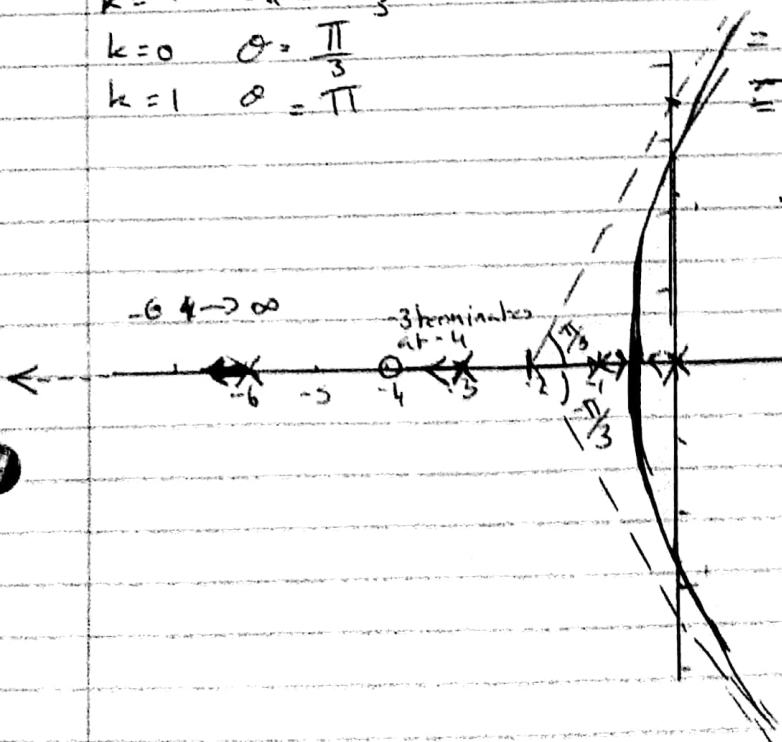 k=0 θ = π/3
k=1 θ = π
-6 → ∞
-3 terminates
at -4
π/3
-6 -5 -4 -3 -2 -1
-π/3